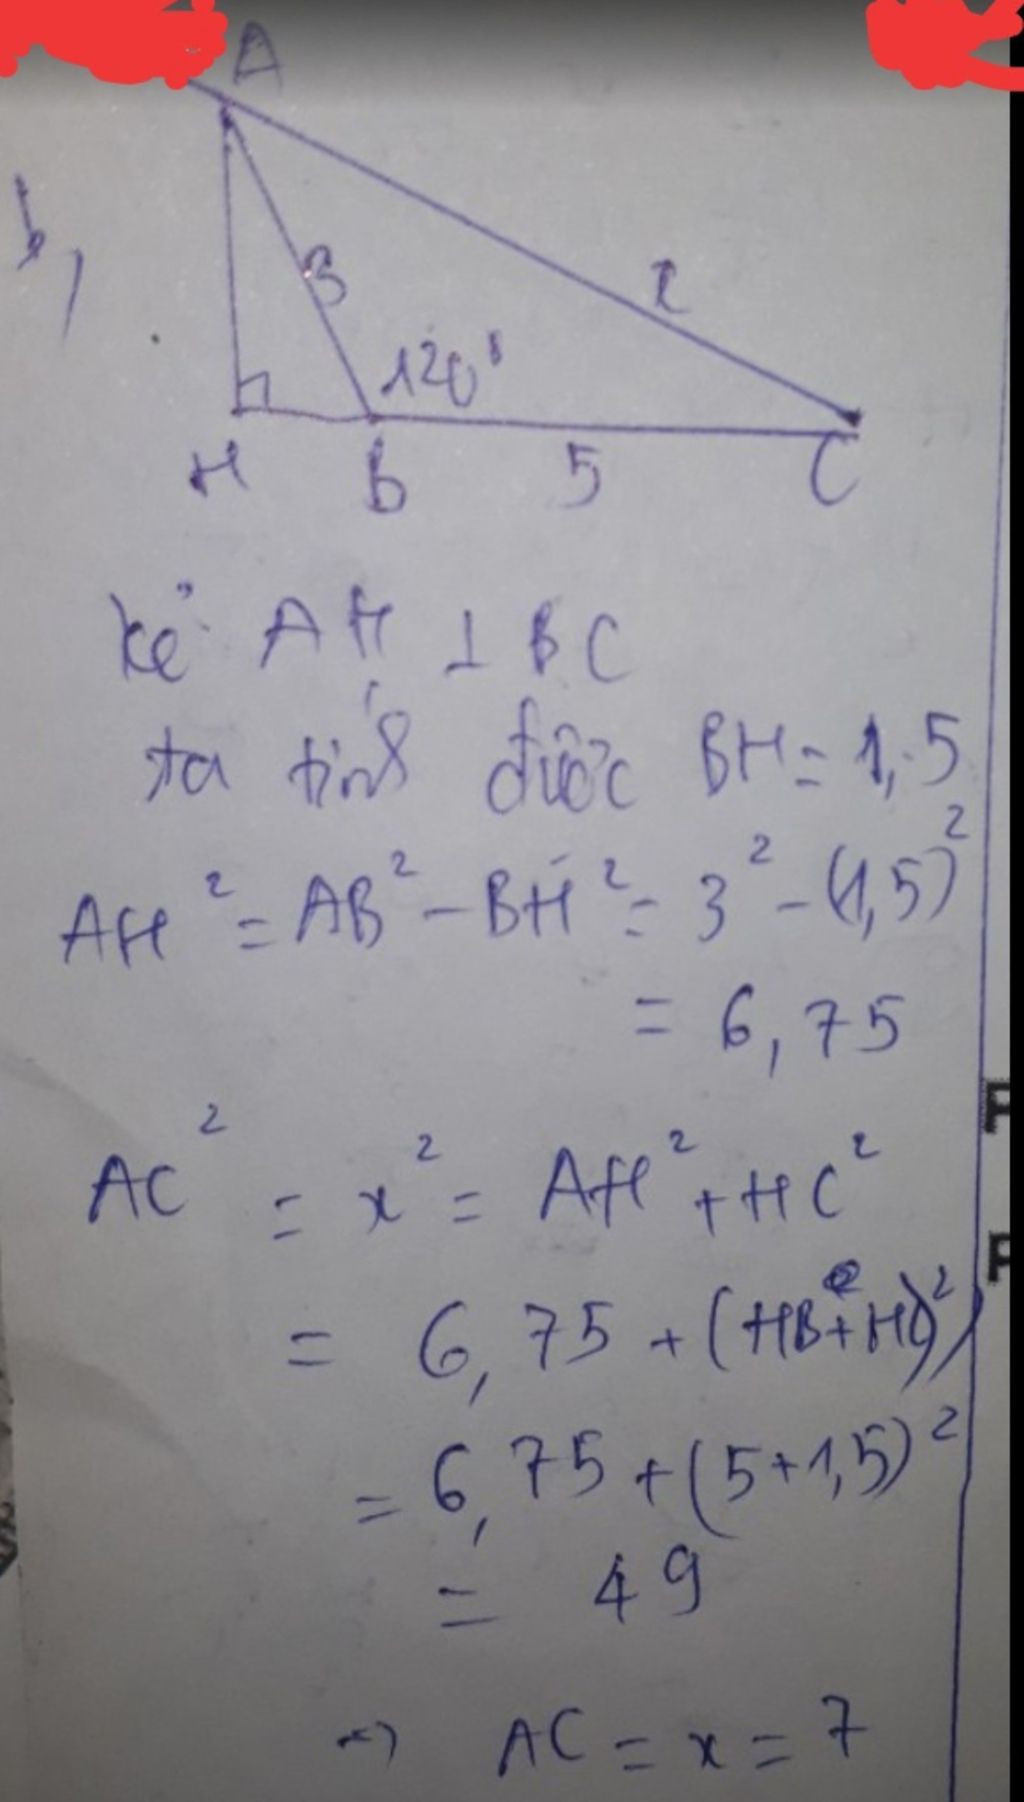 A
b,
3
x
120°
H B 5 C
kẻ AH ⊥ BC
ta tính được BH = 1,5
AH² = AB² - BH² = 3² - (1,5)²
= 6,75
AC² = x² = AH² + HC²
= 6,75 + (HB + HC)²
= 6,75 + (5 + 1,5)²
= 49
=> AC = x = 7